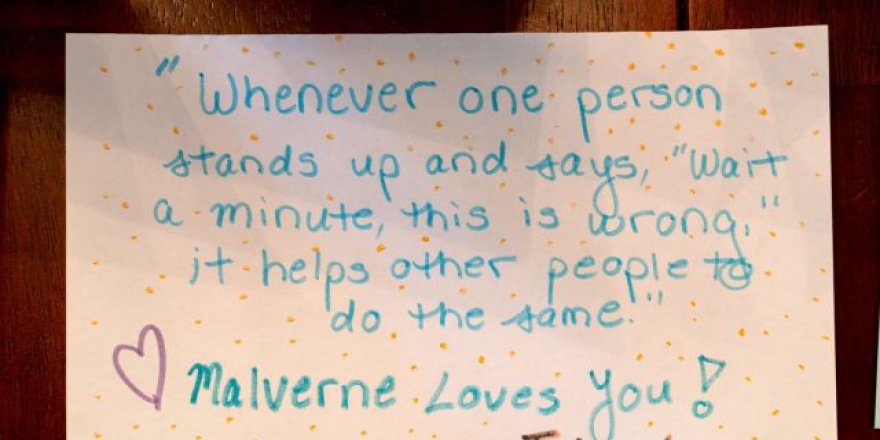 "Whenever one person
stands up and says, "Wait
a minute, this is wrong,"
it helps other people to
do the same."
Malverne Loves You!